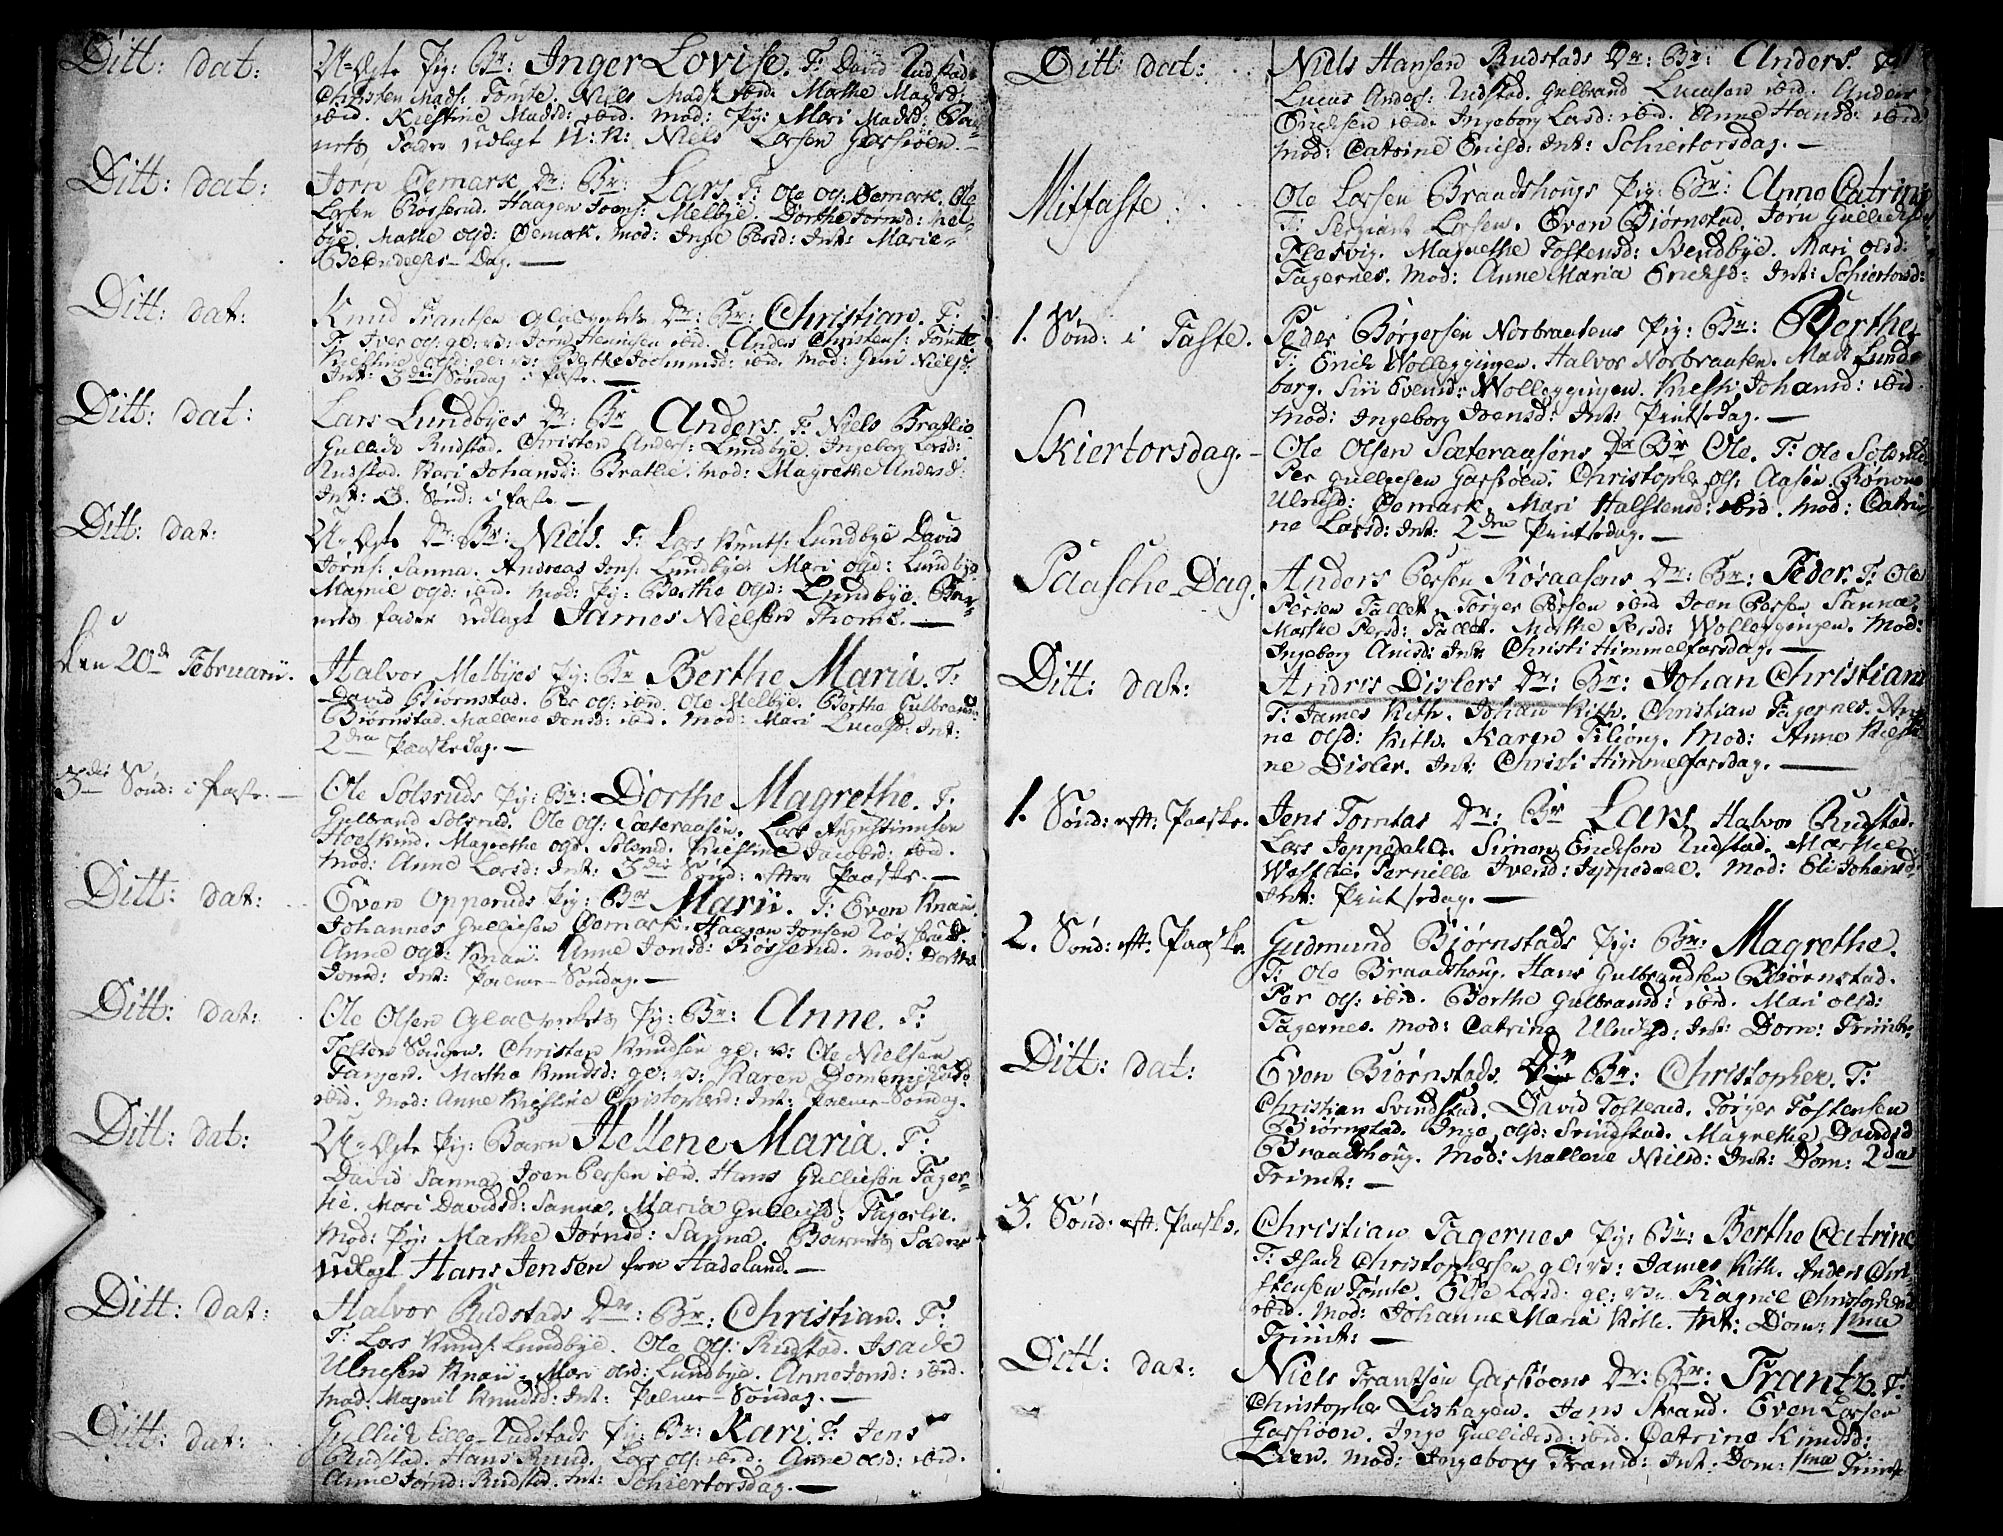 Ditt: dat: U-Ægte Pig: Br: Inger Lovise. F: David Rudstad.
Christen Mads: Tomte. Niels Mads: ibid. Marthe Madsd:
ibid. Kiestine Madsd: ibid. Mod: Pig: Mari Madsd: Bar-
nets Fader udlagt N: N: Niels Larsen Gassiøen.
Ditt: dat: Jørn Oemark Dr: Br: Lars. F: Ole Ols: Oemark. Ole
Larsen Røsserud. Haagen Joens: Melbye. Dorthe Jørnsd: Mel-
bye. Marthe Olsd: Oemark. Mod: Inge Persd: Int: Mariæ-
Bekiendelses-Dag.
Ditt: dat: Knud Frantsen Glasverkets Dr: Br: Christian. F:
F: Iver Ols: gl: v: Jørn Hennisen ibid. Anders Christens: Tomte
Kiestine Olsd: gl: v: Berthe Jochumsd: ibid. Mod: Guri Nielsd:
Int: 3die Søndag i faste.
Ditt: dat: Lars Lundbyes Dr: Br Anders. F: Niels Bratlie
Gullich Rudstad. Christen Anders: Lundbye. Ingeborg Larsd:
Rudstad. Kari Johansd: Bratlie. Mod: Magrethe Andersd:
Int: 3. Sønd: i faste.
Ditt: dat: U-Ægte Dr: Br: Niels. F: Lars Knuts: Lundbye David
Jørns: Sanna. Andreas Jons: Lundbye. Mari Olsd: Lundbye
Magnie Olsd: ibid. Mod: Pig: Berthe Olsd: Lundbye. Bar-
nets fader udlagt James Nielsen Thoms.
den 20de Februarii. Halvor Melbyes Pig: Br Berthe Maria. F:
David Biørnstad. Per Ols: ibid. Ole Melbye. Berthe Gulbrandsd:
Biørnstad. Mallene Jensd: ibid. Mod: Mari Lucasd: Int:
2den Paaskedag.
3die Sønd: i faste. Ole Solsruds Pig: Br: Dorthe Magrethe. F:
Gulbrand Solsrud. Ole Ols: Sæteraasen. Lars Augustinusen
Hoelkind. Magrethe Olsd: Solsrud. Kiestine Jacobsd: ibid.
Mod: Anne Larsd: Int: 3die Sønd: efter Paaske.
Ditt: dat: Even Opperuds Pig: Br Marii. F: Even Knaii.
Johannes Gulliksen Oemark. Haagen Jonsen Røsserud.
Anne Olsd: Knaii Anne Jonsd: Røsserud. Mod: Marthe
Jonsd: Int: Palme-Søndag.
Ditt: dat: Ole Olsen Glasverkets Pig: Br: Anne. F:
Tosten Christen Knudsen gl: v: Ole Nielsen
Tangen. Marthe Knudsd: gl: v: Karen
ibid. Mod: Anne Kiestine Christophersd: Int: Palme-Søndag.
Ditt: dat: U-Ægte Pig: Barn Hellene Maria. F:
David Sanna. Joen Persen ibid. Hans Gulliksen Fager-
lie. Mari Davidsd: Sanna. Maria Gullichsd: Fagerlie.
Mod: Pig: Marthe Jørnsd: Sanna. Barnets Fader
udlagt Hans Jensen fra Hadeland.
Ditt: dat: Halvor Rudstads Dr: Br: Christian. F:
F: Lars Knuds: Lundbye. Ole Ols: Rudstad. Isach
Ulricsen Knaii. Mari Olsd: Lundbye. Anne Jonsd: ibid.
Mod: Magnil Knudsd: Int: Palme-Søndag.
Ditt: dat: Gullich Lille-Rudstads Pig: Br: Kari. F: Jens
Rudstad. Hans Ruud. Lars Ols: ibid. Anne Olsd: ibid.
Anne Jørnsd: Rudstad. Int: Schiertorsdag.
Ditt: dat: Niels Hansen Rudstads Dr: Br: Anders.
Lucas Anders: Rudstad. Gulbrand Lucasen ibid. Anders
Ericksen ibid. Ingeborg Larsd: ibid. Anne Hansd: ibid.
Mod: Catrine Ericsd: Int: Schiertorsdag.
Mitfaste Ole Larsen Brandshougs Pig: Br: Anne Catrine
F: Sergiant Larsen. Even Biørnstad. Jørn Gullichs:
Flesvig. Magrethe Tostensd: Svendbye. Mari Olsd:
Fagernes. Mod: Anne Maria Ericksd: Int: Schiertorsd:
1. Sønd: i Faste. Peder Børgersen Norbraatens Pig: Br: Berthe
F: Erick Wolleggingen. Halvor Norbraaten. Mads Lund-
borg. Siri Evensd: Wolleggingen. Kiesti Johansd: ibid.
Mod: Ingeborg Ivensd: Int: Pintsedag.
Skiertorsdag. Ole Olsen Sæteraasens Dr Br Ole. F: Ole Solsrud
Per Gulliksen Gassiøen. Christopher Ols: Aasen. Rønnou
Ulricsd: Oemark. Mari Halstensd: ibid. Mod: Catri-
ne Larsd: Int: 2den Pintsedag.
Paasche-Dag. Anders Persen Røsaasens Dr: Br: Peder. F: Ole
Persen Fallet. Torger Persen ibid Joen Persen Sanna.
Marthe Persd: Fallet. Marthe Persd: Wolleggingen. Mod:
Ingeborg Int: Christi Himmelfarsdag.
Ditt: dat: Andris Dislers Dr: Br: Johan Christian
F: James Kith. Johan Kith. Christian Fagernes. An-
ne Olsd: Kith. Karen Mod: Anne Kiesti-
ne Disler. Int: Christi Himmelfarsdag.
1. Sønd: eft: Paaske. Jens Tomtes Dr: Br Lars. Halvor Rudstad.
Lars Jeppedalen. Simon Ericksen Rudstad. Marthe
Westlie. Pernille Ivend: Jeppedalen. Mod: Eli Johansd:
Int: Pintsedag.
2. Sønd: eft: Paaske. Gudmund Biørnstads Pig: Br: Magrethe.
F: Ole Braadshoug. Hans Gulbrandsen Biørnstad.
Per Ols: ibid. Berthe Gulbransd: ibid. Mari Olsd:
Fagernes. Mod: Catrine Ulricksd: Int: Dom: Trinit:
Ditt: dat: Even Biørnstads Dr Br: Christopher. F:
Christian Svindstad. David Tosterud. Torger Tostensen
Biørnstad. Inge Olsd: Svindstad. Magrethe Davidsd
Braadshoug. Mod: Mallene Nielsd: Int: Dom: 2da
Trinit:
3. Sønd: eft: Paaske. Christian Fagernes Pig: Br: Berthe Catrine
F: Isach Christophersen gl: v: James Kith. Anders Chri-
stensen Tomte. Else Larsd: gl: v: Ragnil Christophersd
ibid. Mod: Johanne Maria Kith. Int: Dom: 1ma
Trinit:
Ditt: dat: Niels Frantsen Gassiøens Dr: Br: Frantz. F:
Christopher Lishagen. Jens Strand. Even Larsen
Gassiøen. Inge Gullichsd: ibid. Catrine Knudsd:
Lien. Mod: Ingeborg Fransd: Int: Dom: 1ma Trinit: